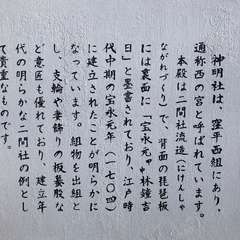 神明社は、窪平西組にあり、
通称西の宮と呼ばれています。
本殿は二間社流造(にけんしゃ
ながれづくり)で、背面の琵琶板
には裏面に「宝永元甲林鐘吉
日」と墨書されており、江戸時
代中期の宝永元年(一七〇四)
に建立されたことが明らかに
なっています。組物を出組と
し、支輪や妻飾りの板蟇股な
ど意匠も優れており、建立年
代の明らかな二間社の例とし
て貴重なものです。